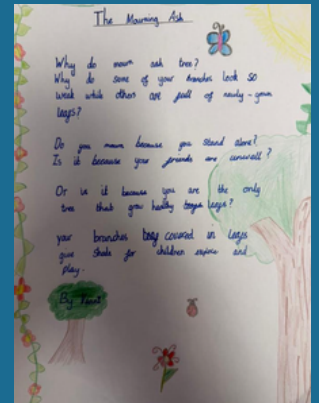 The Mourning Ash
Why do mourn ash tree?
Why do some of your branches look so
weak while others are full of newly-grown
leafs?
Do you mourn because you stand alone?
Is it because your friends are unwell?
Or is it because you are the only
tree that grow healthy leafs?
your branches covered in leafs
give shade for children explore and
play.
By